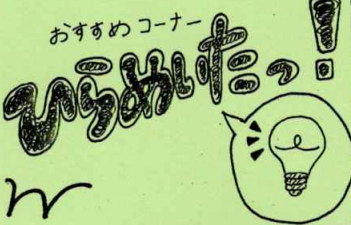 おすすめコーナー
ひらめいたっ!